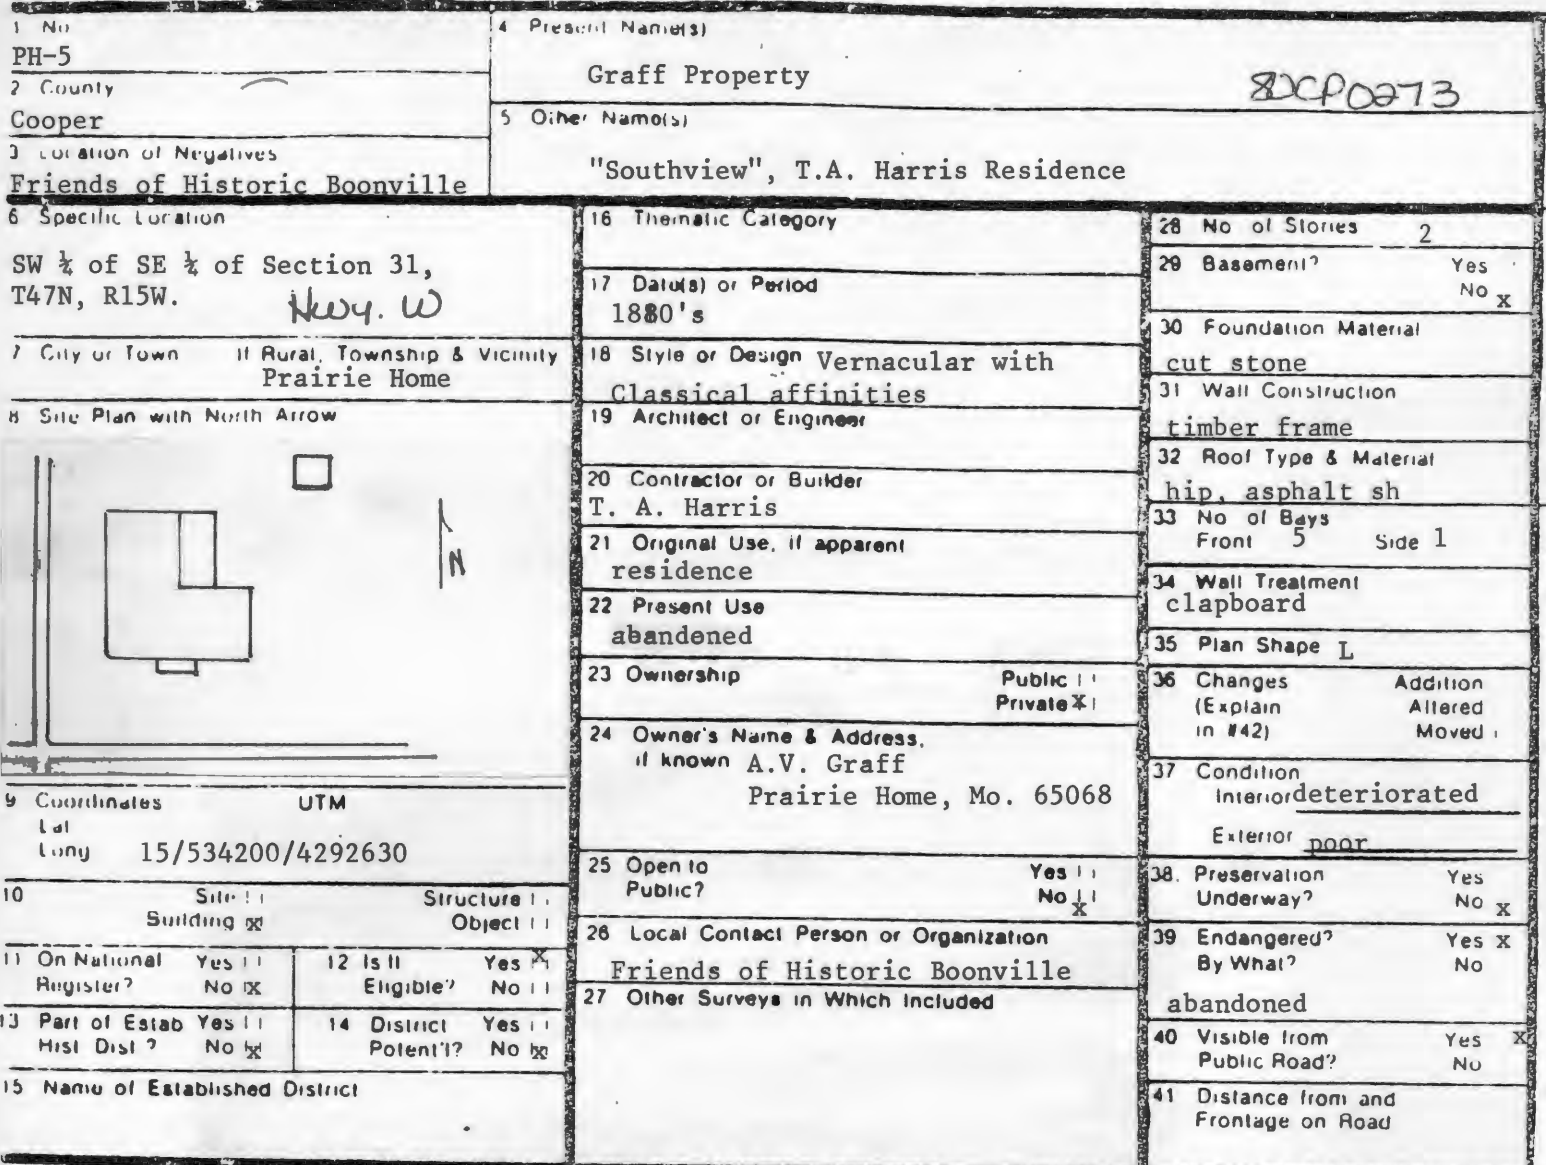 1 No
PH-5
2 County
Cooper
3 Location of Negatives
Friends of Historic Boonville
4 Present Name(s)
Graff Property
5 Other Name(s)
"Southview", T.A. Harris Residence
6 Specific Location
SW ¼ of SE ¼ of Section 31,
T47N, R15W.
Hwy. W
7 City or Town If Rural, Township & Vicinity
Prairie Home
8 Site Plan with North Arrow
N
9 Coordinates UTM
Lat
Long 15/534200/4292630
10 Site Structure
Building x Object
11 On National Yes
Register? No x
12 Is It Yes x
Eligible? No
13 Part of Estab Yes
Hist Dist? No x
14 District Yes
Potent'l? No x
15 Name of Established District
16 Thematic Category
17 Date(s) or Period
1880's
18 Style or Design Vernacular with
Classical affinities
19 Architect or Engineer
20 Contractor or Builder
T. A. Harris
21 Original Use, if apparent
residence
22 Present Use
abandoned
23 Ownership Public
Private x
24 Owner's Name & Address,
if known A.V. Graff
Prairie Home, Mo. 65068
25 Open to Yes
Public? No x
26 Local Contact Person or Organization
Friends of Historic Boonville
27 Other Surveys in Which Included
28 No of Stories 2
29 Basement? Yes
No x
30 Foundation Material
cut stone
31 Wall Construction
timber frame
32 Roof Type & Material
hip, asphalt sh
33 No of Bays
Front 5 Side 1
34 Wall Treatment
clapboard
35 Plan Shape L
36 Changes Addition
(Explain Altered
in #42) Moved
37 Condition
Interior deteriorated
Exterior poor
38. Preservation Yes
Underway? No x
39 Endangered? Yes x
By What? No
abandoned
40 Visible from Yes x
Public Road? No
41 Distance from and
Frontage on Road